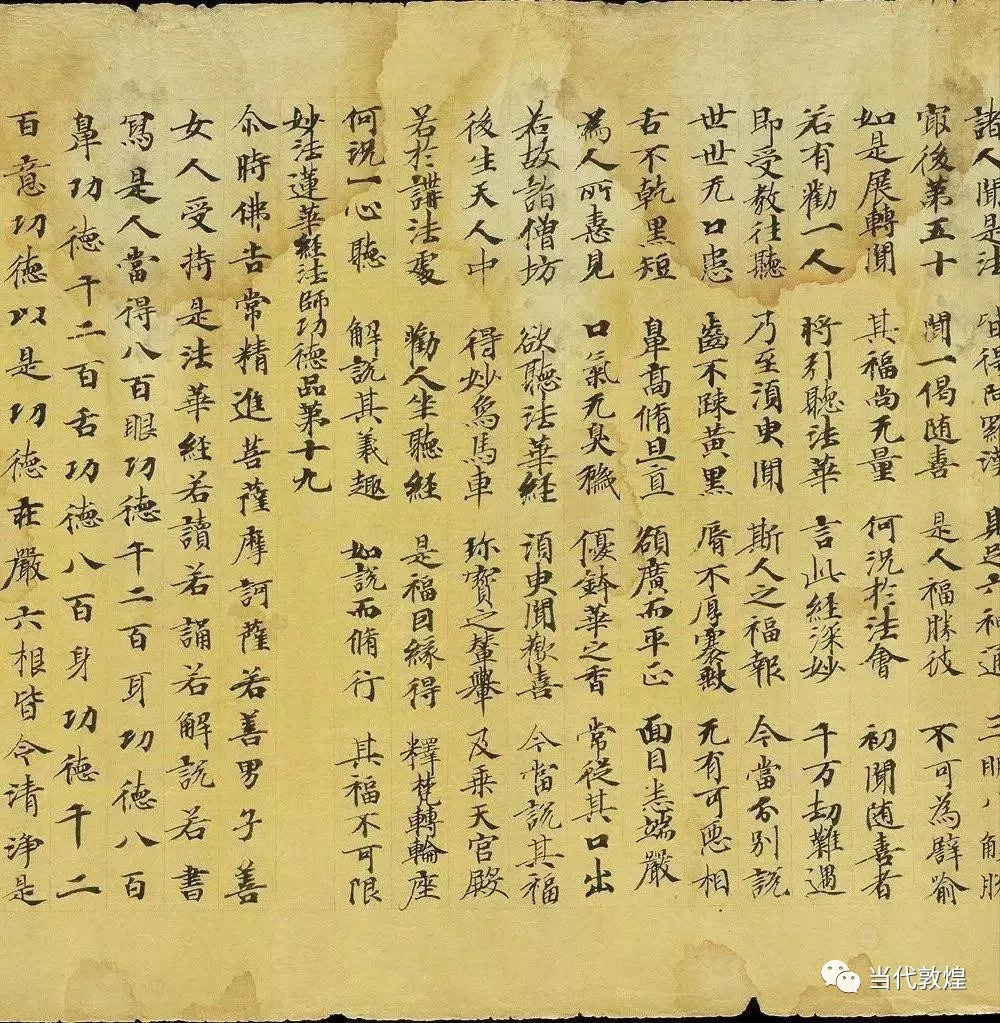 諸人聞是法 皆得阿羅漢 具足六神通 三明八解脫
寂後第五十 聞一偈随喜 是人福勝彼 不可為譬喻
如是展轉聞 其福尚无量 何況於法會 初聞随喜者
若有勸一人 将引聽法華 言此経深妙 千万劫難遇
即受教往聽 乃至須臾聞 斯人之福報 今當分別說
世世无口患 齒不踈黃黑 脣不厚褰𡙇 无有可惡相
舌不乾黑短 鼻髙脩且直 額廣而平正 面目悉端嚴
為人所憙見 口氣无臭穢 優鉢華之香 常從其口出
若故詣僧坊 欲聽法華経 須臾聞歡喜 今當說其福
後生天人中 得妙烏馬車 珎寶之輦轝 及乗天宫殿
若於講法處 勸人坐聽経 是福因緣得 釋梵轉輪座
何況一心聽 解說其義趣 如說而脩行 其福不可限
妙法蓮華経法師功德品第十九
尒時佛告常精進菩薩摩訶薩若善男子善
女人受持是法華経若讀若誦若解說若書
寫是人當得八百眼功德千二百耳功德八百
鼻功德千二百舌功德八百身功德千二
百意功德以是功德莊嚴六根皆令清淨是
当代敦煌